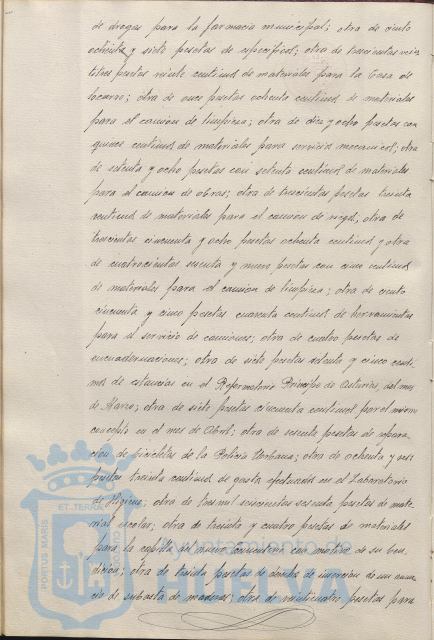 de drogas para la farmacia municipal; otra de ciento
ochenta y siete pesetas de específicos; otra de trescientas vein
titres pesetas veinte centimos de materiales para la Casa de
Socorro; otra de once pesetas ochenta centimos de materiales
para el camión de limpieza; otra de diez y ocho pesetas con
quince centimos de materiales para servicio mecanico; otra
de setenta y ocho pesetas con setenta centimos de materiales
para el camion de obras; otra de trescientas pesetas treinta
centimos de materiales para el camión de riego, otra de
trescientas cincuenta y ocho pesetas ochenta centimos y otra
de cuatrocientas sesenta y nueve pesetas con cinco centimos
de materiales para el camion de limpieza; otra de ciento
cincuenta y cinco pesetas cuarenta centimos de herramientas
para el servicio de camiones; otra de cuatro pesetas de
encuadernaciones; otra de siete pesetas setenta y cinco centi
mos de estancias en el Reformatorio Principe de Asturias, del mes
de Marzo; otra de siete pesetas cincuenta centimos por el mismo
concepto en el mes de Abril; otra de sesenta pesetas de repara
ción de bicicletas de la Policia Urbana; otra de ochenta y seis
pesetas treinta centimos de gastos efectuados en el Laboratorio
de Higiene; otra de tres mil seiscientas sesenta pesetas de mate
rial escolar; otra de treinta y cuatro pesetas de materiales
para la capilla del nuevo cementerio con motivo de su ben
dición; otra de treinta pesetas de derechos de insercion de un anun
cio de subasta de maderas; otra de veinticuatro pesetas para
PORTUS MARIS
ET TERRA
Ayuntamiento de